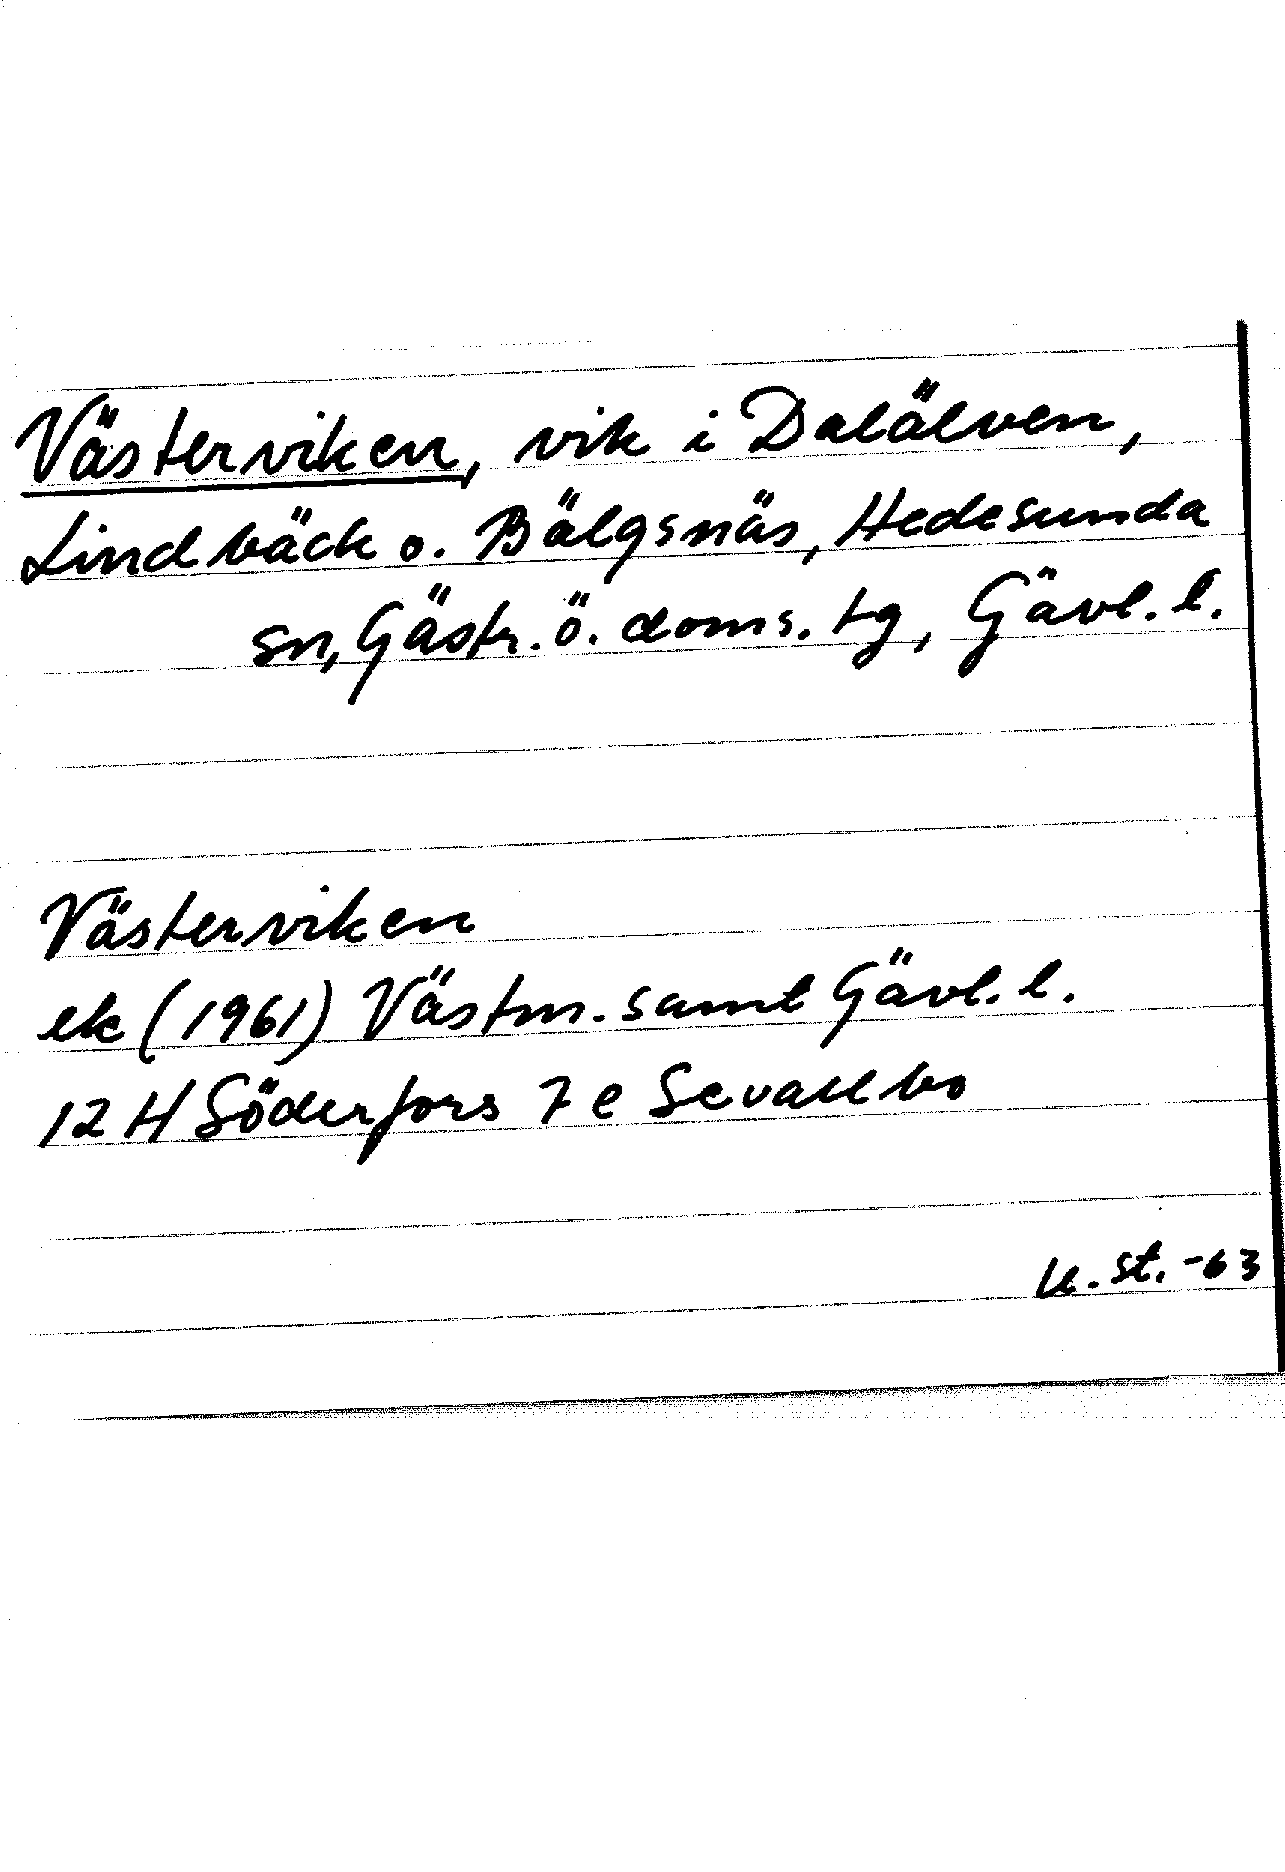 Västerviken, vik i Dalälven,
Lindbäck o. Bälgsnäs, Hedesunda
sn, Gästr. ö. doms. tg, Gävl. l.
Västerviken
ek (1961) Västm. samt Gävl. l.
12 H Söderfors 7 e Sevallbo
U. st. -63